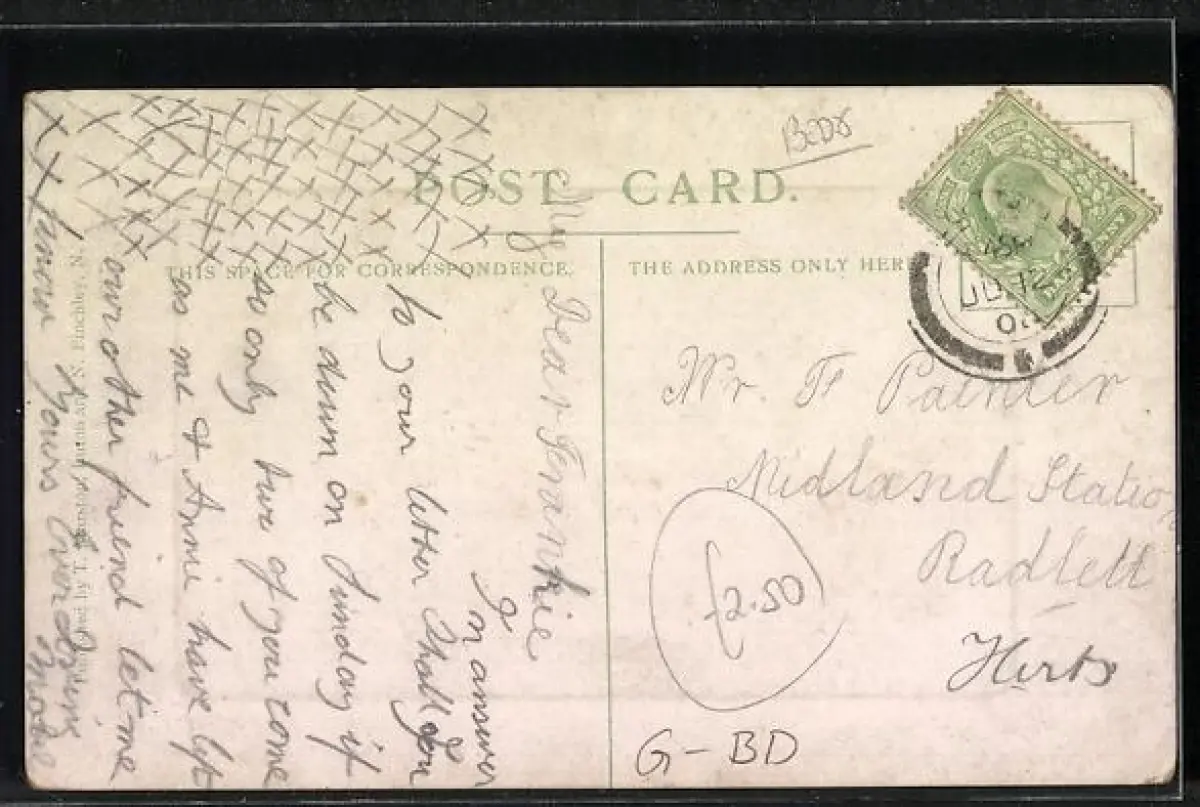 POST CARD.
THIS SPACE FOR CORRESPONDENCE.
THE ADDRESS ONLY HERE
Beds
My Dear Frankie
In answer
to your letter Shall you
be down on Sunday if
so only two of you come
as me & Annie have left
our other friend let me
know Yours Ever loving
Mr. F Painter
Midland Station
Radlett
Herts
£2.50
G-BD
N. Finchley, N.